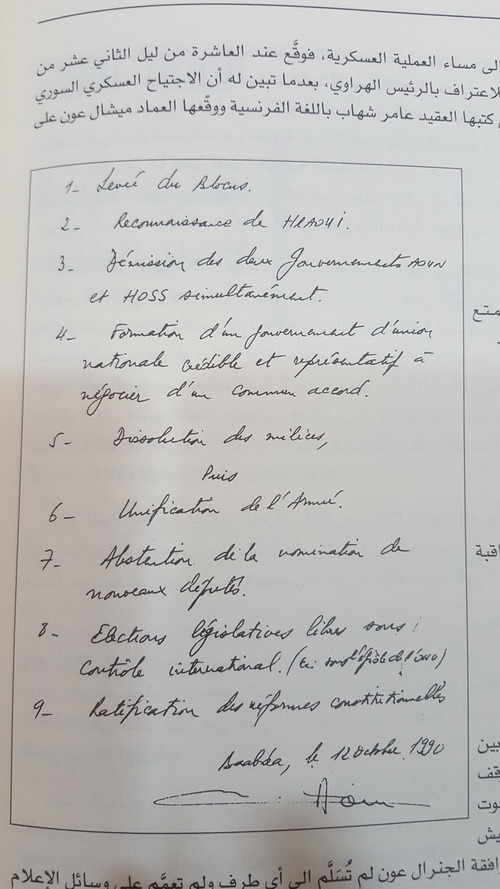 لى مساء العملية العسكرية، فوقَّع عند العاشرة من ليل الثاني عشر من
لاعتراف بالرئيس الهراوي، بعدما تبين له أن الاجتياح العسكري السوري
كتبها العقيد عامر شهاب باللغة الفرنسية ووقّعها العماد ميشال عون على
1- Levée du Blocus.
2- Reconnaissance de HRAOUI.
3- Démission des deux Gouvernements AOUN
et HOSS simultanément.
متع
4- Formation d'un gouvernement d'union
nationale crédible et représentatif à
négocier d'un commun accord.
5- Dissolution des milices,
Puis
6- Unification de l'Armée.
7- Abstention de la nomination de
اقبة
nouveaux députés.
8- Elections législatives libres sous
contrôle international. (
9- Ratification des réformes constitutionnelles
بين
Baabda, le 12 Octobre 1990
قف
Aoun
وت
يش
افقة الجنرال عون لم تُسَلَّم الى أي طرف ولم تعمَّم على وسائل الإعلام